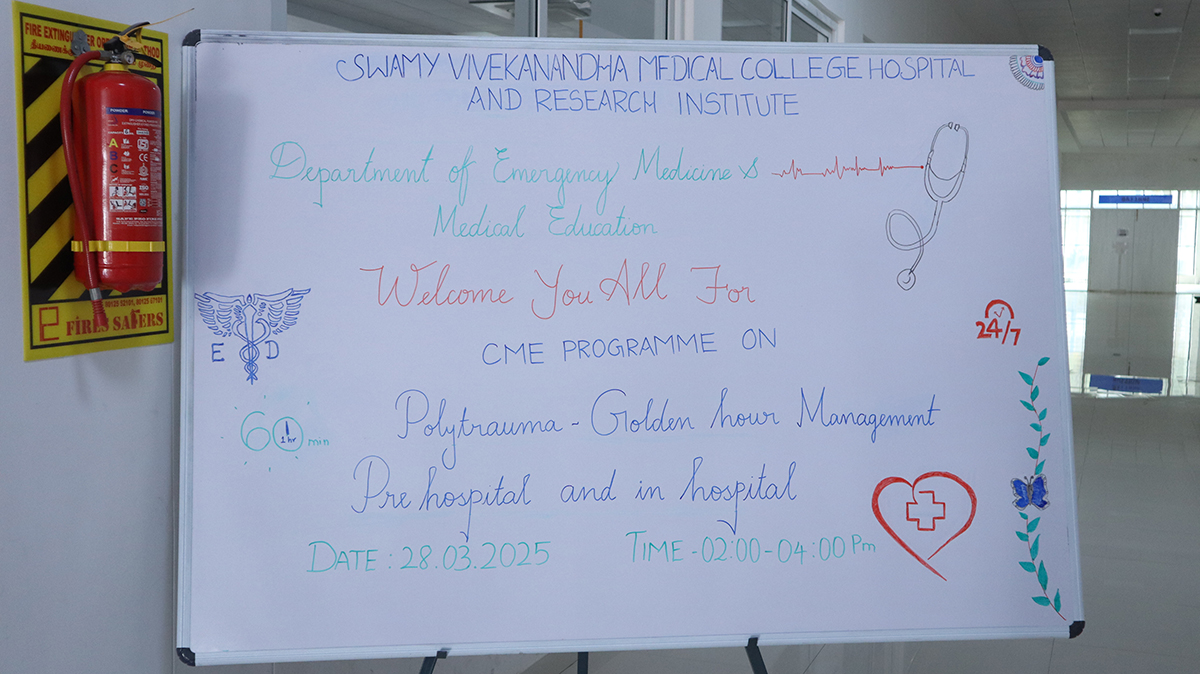 SWAMY VIVEKANANDHA MEDICAL COLLEGE HOSPITAL
AND RESEARCH INSTITUTE
Department of Emergency Medicine &
Medical Education
Welcome You All For
CME PROGRAMME ON
Polytrauma - Golden hour Management
Pre hospital and in hospital
DATE : 28.03.2025
TIME - 02:00 - 04:00 Pm
E D
60 min
1 hr
24/7
FIRE EXTINGUISHER
POWDER
A
B
C
FIRES SAFERS